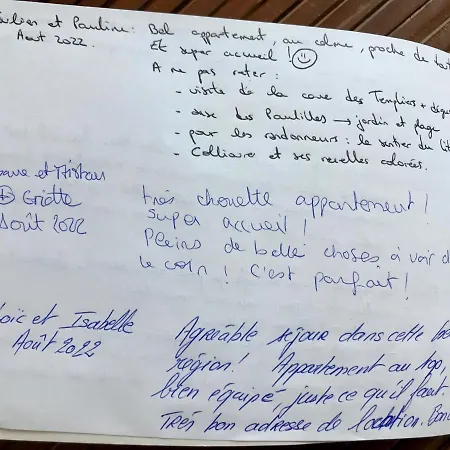 Julien et Pauline : Bel appartement, au calme, proche de tout
Août 2022. Et super accueil !
A ne pas rater :
- visite de la cave des Templiers +
- anse des Paulilles → jardin et plage
- pour les randonneurs : le sentier du
- Collioure et ses ruelles colorées.
et Tristan
+ Griotte
Août 2022
très chouette appartement !
super accueil !
Pleins de belle choses à voir
le coin ! C'est parfait !
Loïc et Isabelle
Août 2022
Agréable séjour dans cette
région ! Appartement au top,
bien équipé juste ce qu'il faut.
Très bon adresse de location.